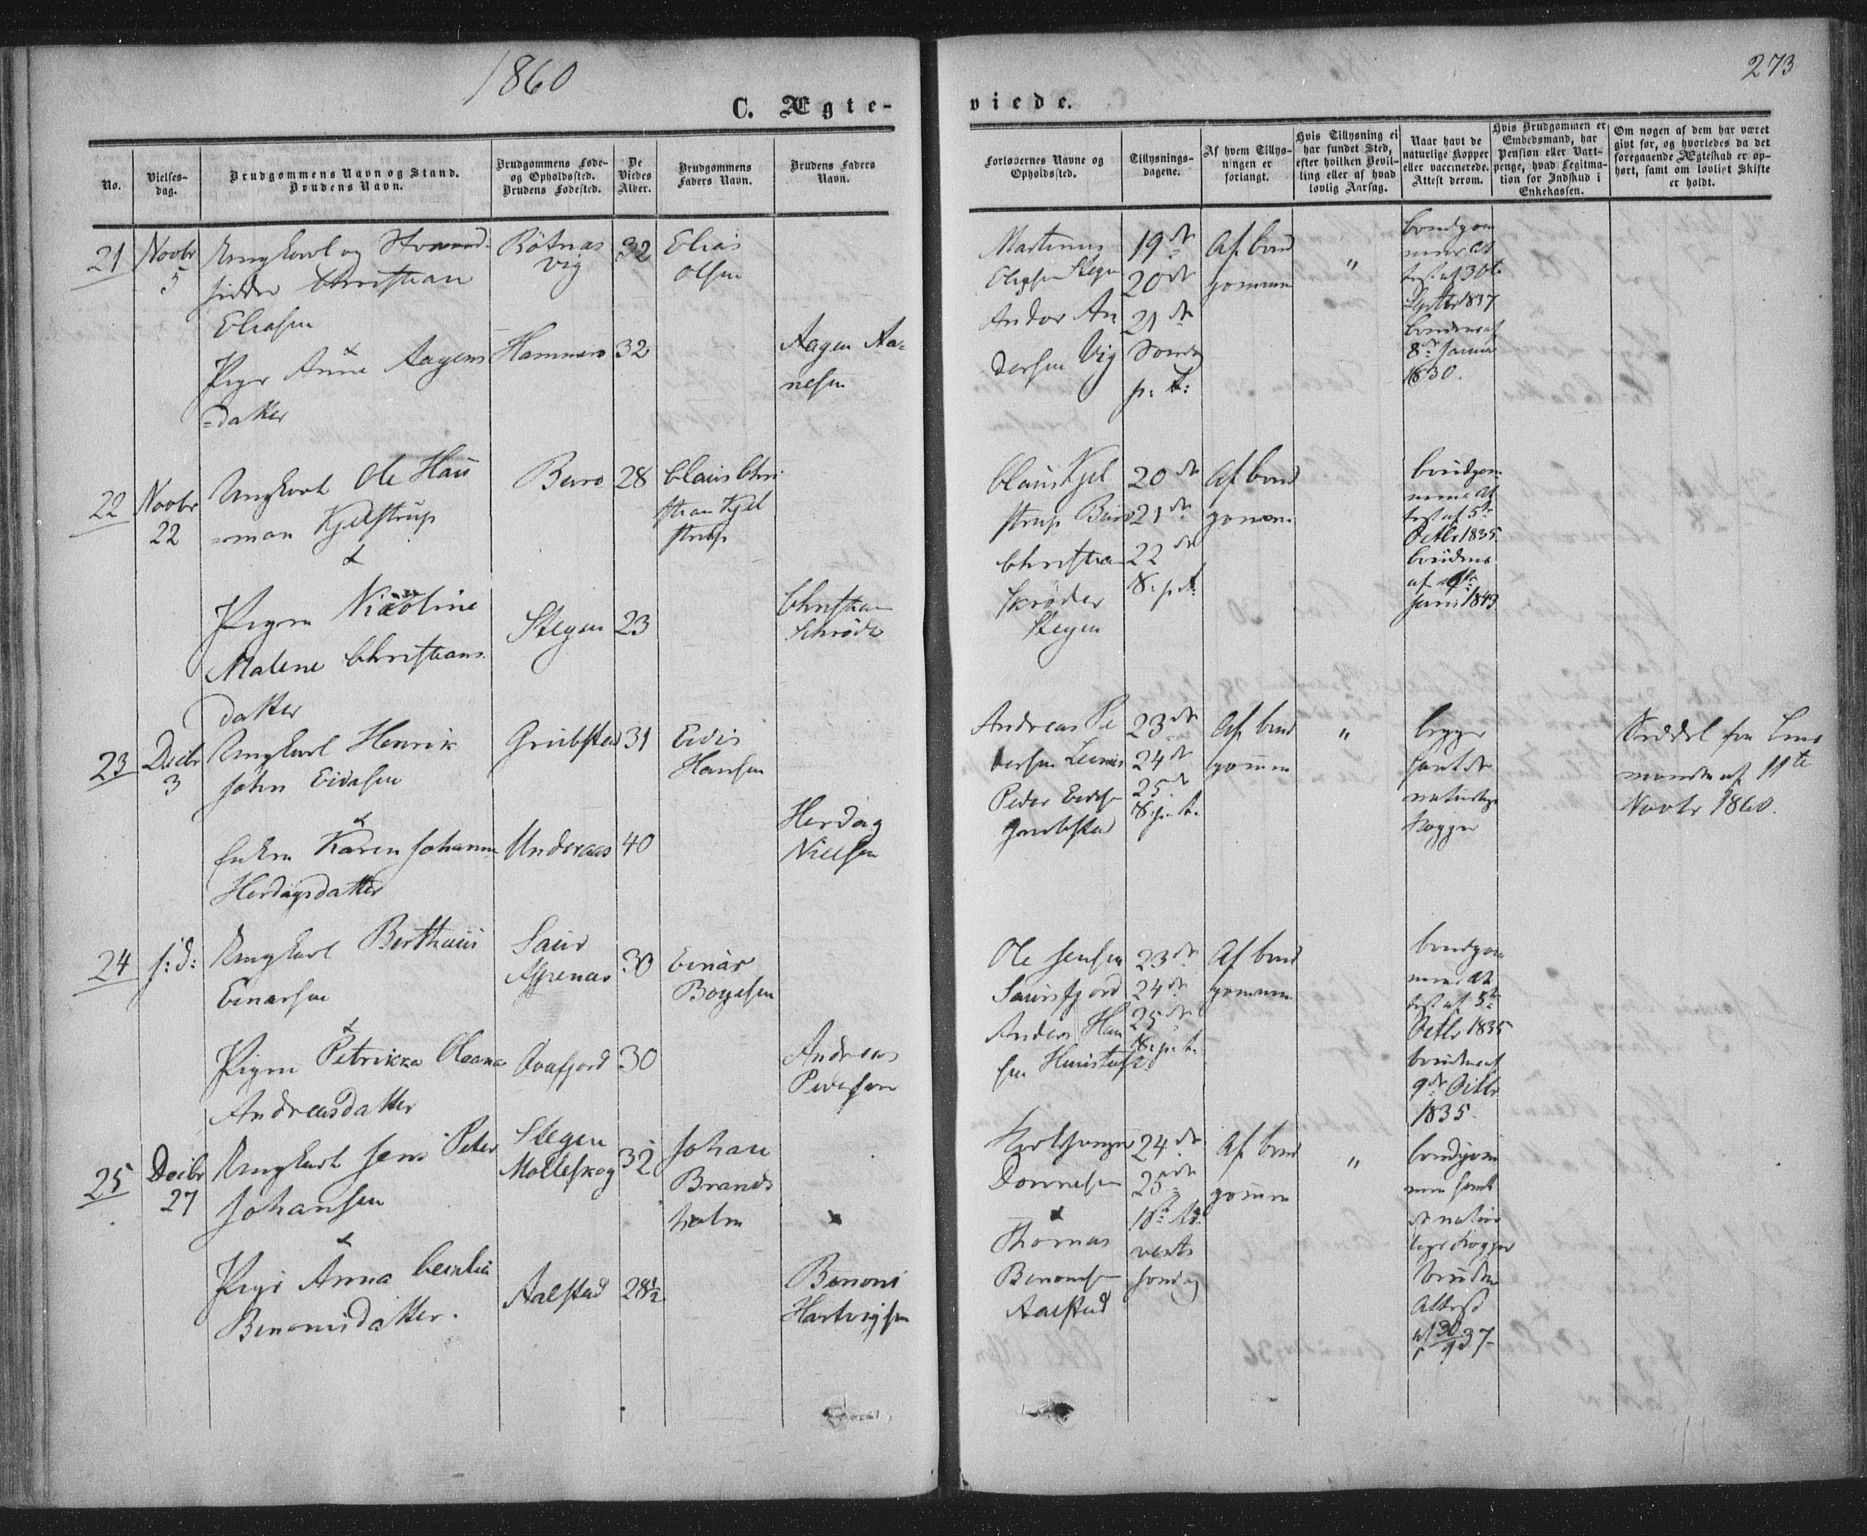 1860
273
C. Ægte-
viede.
No.
Vielses-
dag.
Brudgommens Navn og Stand.
Brudens Navn.
Brudgommens Føde-
og Opholdssted.
Brudens Fødested.
De
Viedes
Alder.
Brudgommens
Faders Navn.
Brudens Faders
Navn.
Forlovernes Navne og
Opholdssted.
Tillysnings-
dagene.
Af hvem Tillys-
ningen er
forlangt.
Hvis Tillysning ei
har fundet Sted,
efter hvilken Bevil-
ling eller af hvad
lovlig Aarsag.
Naar havt de
naturlige Kopper
eller vaccinerede.
Attest derom.
Hvis Brudgommen er
Embedsmand, har
Pension eller Vart-
penge, hvad Legitima-
tion for Indskud i
Enkekassen.
Om nogen af dem har været
givt for, og hvorledes da det
foregaaende Ægteskab er op-
hørt, samt om lovligt Skifte
er holdt.
21
Novbr
5
Ungkarl og
sidder Christian
Eliasen
&
Pige Anne Aagens
=datter
Bötnas
vig
Hammers
32
32
Elias
Olsen
Aagen Aa-
nesen
Martinus
Eliasen
Andor An
dersen Vig
19de
20de
21de
Sønd.
p. T:
Af brud
gommen
"
brudgom
mens at
test af 30te
Septbr 1837
brudens af
8de Janua
1830.
22
Novbr
22
Ungkarl Ole Hans
=man Kjelstrup
&
Pigen Nicoline
Malene Christians
datter
28
Stegen
23
Claus Chri
stian Kjel
strup
Christian
Schrøder
Claus Kjel
strup
Christian
Skrøder
Stegen
20de
21de
22de
S. p. T.
Af brud
gommen
brudgom
mens at
test af 5te
Octbr 1835
brudens
af
Juni 1843
23
Decbr
3
Ungkarl Henrik
John Evidsen
&
Enken Karen Johanna
Herdagsdatter
Grubstad
Underaas
31
40
Evis
Hansen
Herdag
Nielsen
Andreas Pe
dersen
Peder
Grubstad
23de
24de
25de
S. p. T.
Af brud
gommen
"
begge
havt de
naturlige
Kopper
Seddel fra Lens
manden af 11te
Novbr 1860.
24
s: d:
Ungkarl Bertheus
Einarsen
&
Pigen Petrikka Oleana
Andreasdatter
30
30
Einar
Børgesen
Andreas
Pedersen
Ole Jensen
Sausfjord
Anders Han
sen
23de
24de
25de
S. p. T.
Af brud
gommen
brudgom
mens at
test af 5te
Octbr 1835
brudens af
9de Octbr
1835.
25
Decbr
27
Ungkarl Jens Peter
Johansen
&
Pige Anna Cecilia
Benonisdatter.
Stegen
Molleskog
Aalstad
32
28½
Johan
Brands
holm
Benoni
Hartvigsen
Dønnesen
&
Thomas
Benonisen
Aalstad
24de
25de
18de
vents
søndag
Af brud
gommen
"
brudgom
men havt
de natur
lige Kopper
bruden
Attest
af 30/9 37-